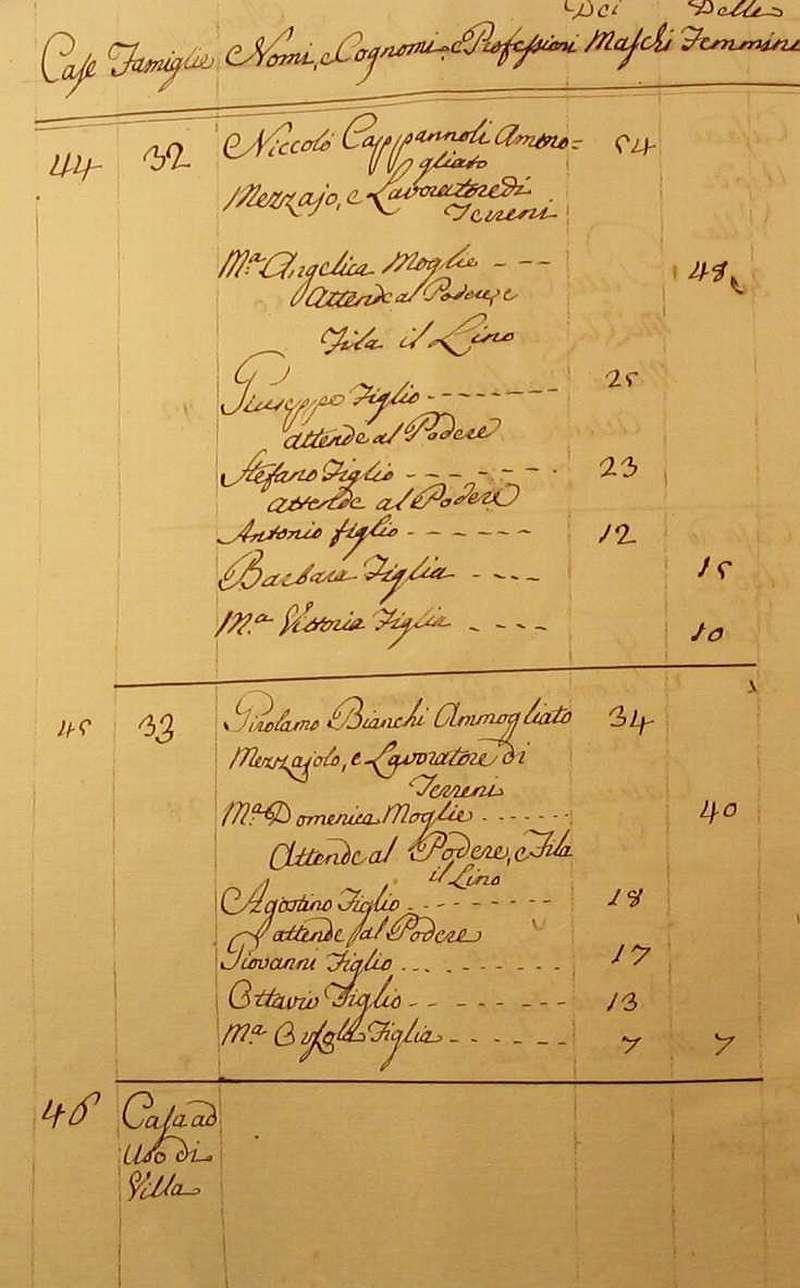 Dei Delle
Case Famiglie Nomi, e Cognomi, e Professioni Maschi Femmine
44 32 Niccolò Cappannoli Ammo= 54
gliato
Mezzajo, e Lavoratore di
Terreni
M.ª Angelica Moglie - - - 48
Attende al Podere, e
Fila il Lino
Giuseppe Figlio - - - - - - - - 25
attende al Podere
Stefano Figlio - - - - - - - 23
attende al Podere
Antonio figlio - - - - - - 12
Barbara Figlia - - - - 15
M.ª Vittoria Figlia - - - - 10
45 33 Girolamo Bianchi Ammogliato 34
Mezzajolo, e Lavoratore di
Terreni
M.ª Domenica Moglie - - - - - - - 40
Attende al Podere, e Fila
il Lino
Agostino Figlio - - - - - - - - - 18
attende al Podere
Giovanni Figlio - - - - - - - - - 17
Ottavio Figlio - - - - - - - - 13
M.ª Figlia - - - - - - 7 7
46 Casa ad
Uso di
Villa